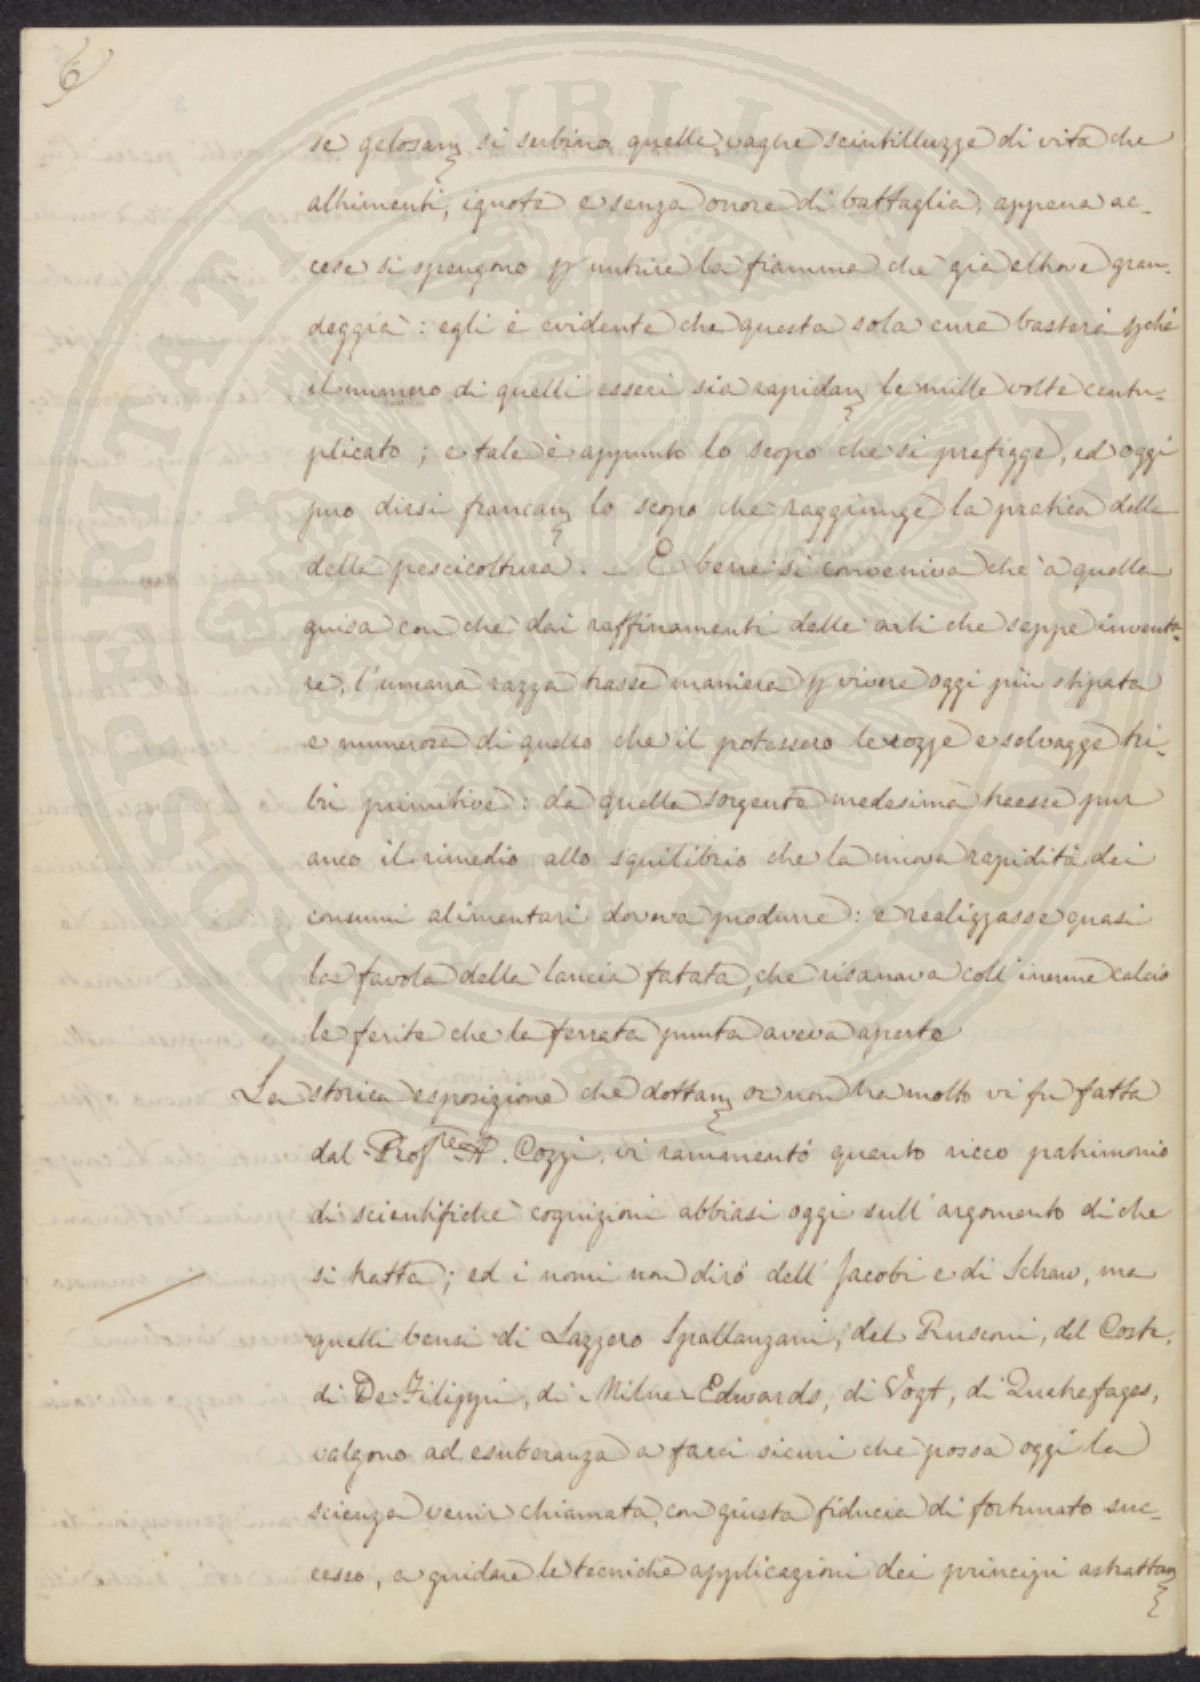 6
se gelosam si serbino quelle vaghe scintilluzze di vita che
altrimenti, ignote e senza onore di battaglia, appena ac-
cese si spengono p nutrire la fiamma che già altrove gran-
deggia: egli è evidente che questa sola cura basterà pchè
il numero di quelli esseri sia rapidam le mille volte centu-
plicato; e tale è appunto lo scopo che si prefigge, ed oggi
può dirsi francam lo scopo che raggiunge la pratica della
della pescicoltura. — E bene si conveniva che a quella
guisa con che dai raffinamenti delle arti che seppe inventa-
re, l'umana razza trasse maniera p vivere oggi più stipata
e numerosa di quello che il potessero le rozze e selvagge tri-
bù primitive: da quella sorgente medesima traesse pur
anco il rimedio allo squilibrio che la nuova rapidità dei
consumi alimentari doveva produrre: e realizzasse quasi
la favola della lancia fatata, che risanava coll'inerme calcio
le ferite che la ferrata punta aveva aperte
La storica esposizione che dottam or non ha molto vi fu fatta
dal Profre A. Cozzi, vi rammentò quanto ricco patrimonio
di scientifiche cognizioni abbiasi oggi sull'argomento di che
si tratta; ed i nomi non dirò dell'Jacobi e di Schaw, ma
quelli bensì di Lazzero Spallanzani, del Rusconi, del Coste,
di De-Filippi, di Milne-Edwards, di Vogt, di Quatrefages,
valgono ad esuberanza a farci sicuri che possa oggi la
scienza venir chiamata, con giusta fiducia di fortunato suc-
cesso, a guidare le tecniche applicazioni dei principi astrattam
PROSPERITATI PVBLICAE AVGENDAE